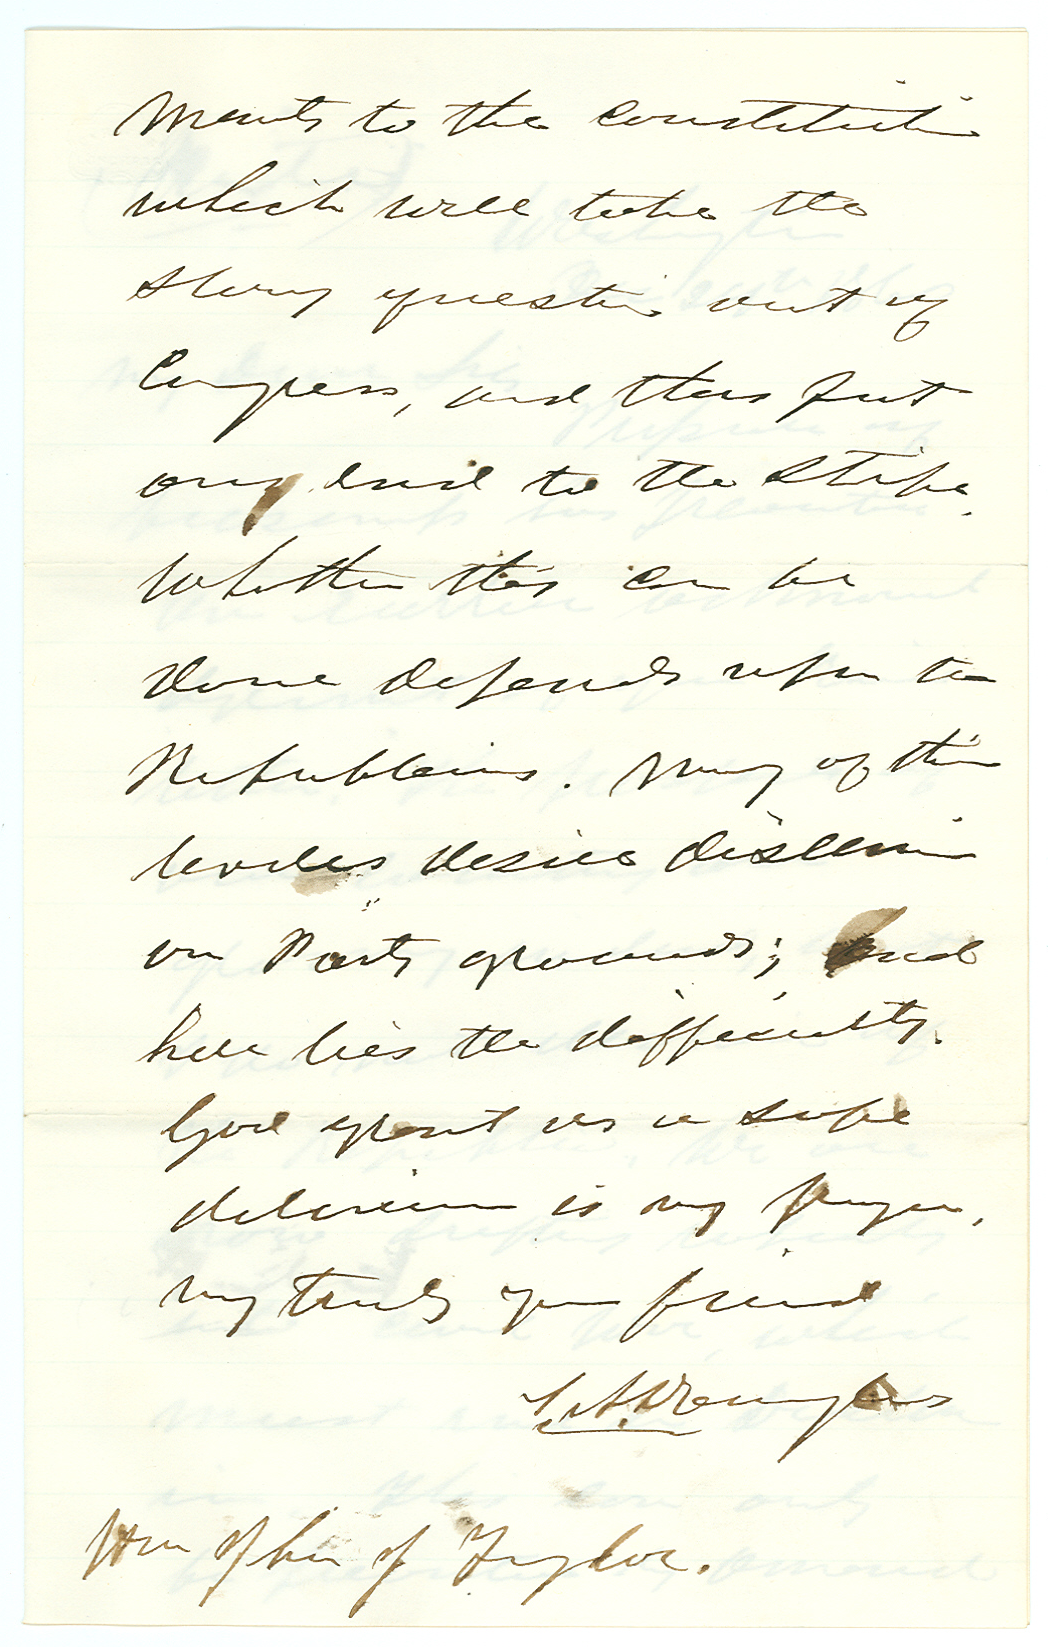 ments to the constitution
which will take the
slavery question out of
Congress, and thus put
an end to the strife.
Whether this can be
done depends upon the
Republicans. Many of their
leaders desire disunion
on Party grounds; and
here lies the difficulty.
God grant us a safe
deliverance is my prayer.
very truly your friend
S. A. Douglas
Hon John J Taylor.